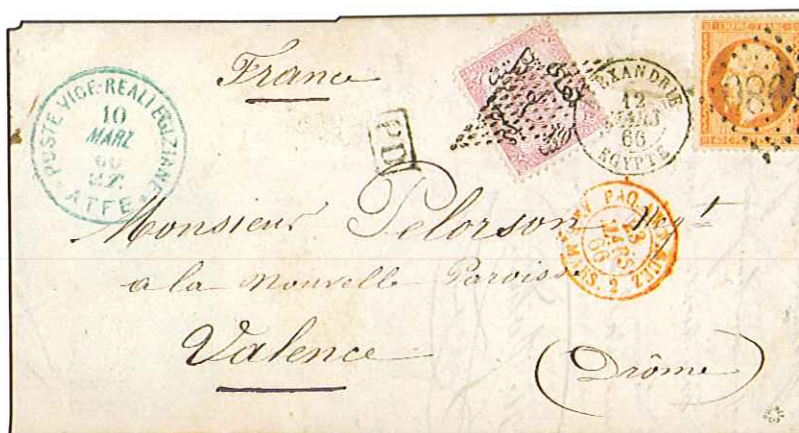 France
POSTE VICE-REALI EGIZIANE
10
MARZ
66
ATFE
PD
ALEXANDRIE
12
MARS
66
EGYPTE
Monsieur Pelorson Negt
a la Nouvelle Paroisse
Valence
(Drôme)
28
MARS
66